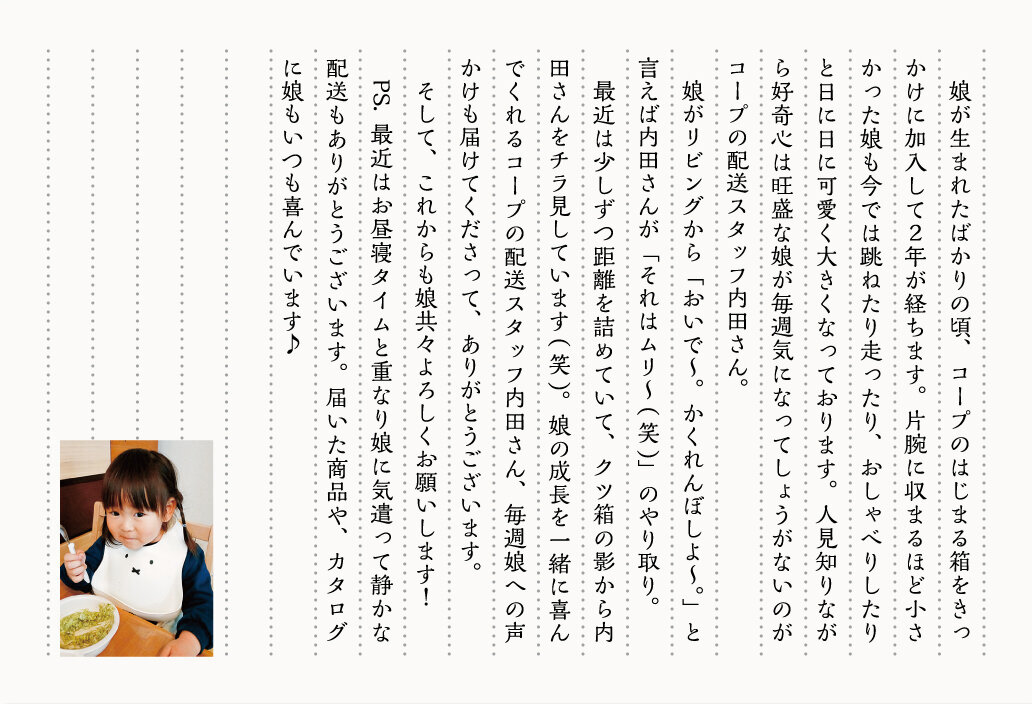 娘が生まれたばかりの頃、コープのはじまる箱をきっ
かけに加入して２年が経ちます。片腕に収まるほど小さ
かった娘も今では跳ねたり走ったり、おしゃべりしたり
と日に日に可愛く大きくなっております。人見知りなが
ら好奇心は旺盛な娘が毎週気になってしょうがないのが
コープの配送スタッフ内田さん。
娘がリビングから「おいで〜。かくれんぼしよ〜。」と
言えば内田さんが「それはムリ〜(笑)」のやり取り。
最近は少しずつ距離を詰めていて、クツ箱の影から内
田さんをチラ見しています(笑)。娘の成長を一緒に喜ん
でくれるコープの配送スタッフ内田さん、毎週娘への声
かけも届けてくださって、ありがとうございます。
そして、これからも娘共々よろしくお願いします！
PS. 最近はお昼寝タイムと重なり娘に気遣って静かな
配送もありがとうございます。届いた商品や、カタログ
に娘もいつも喜んでいます♪